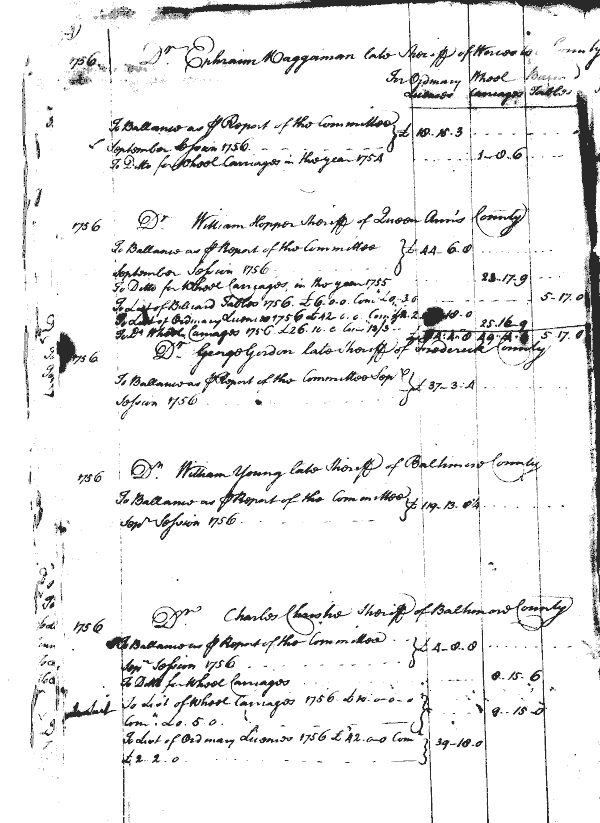 1756 Dr Ephraim Waggaman late Sheriff of Worcester County
For Ordinary Wheel
Licences Carriages Tables
To Ballance as pr Report of the Committee
September Session 1756 £ 18..15..3
To Ditto for Wheel Carriages in the year 1754 1..0..6
1756 Dr William Hopper Sheriff of Queen Ann's County
To Ballance as pr Report of the Committee £ 44..6..0
September Session 1756
To Ditto for Wheel Carriages, in the year 1755 23..17..9
To List of Billiard Tables 1756 £6..0..0 Com £0..3..0 5..17..0
To List of Ordinary Licences 1756 £42..0..0 Com 18..0
To Do Wheel Carriages 1756 £26.10.0 Com 13/3 25..16..9
5..17..0
1756 Dr George Gordon late Sheriff of Frederick County
To Ballance as pr Report of the Committee Sepr
Session 1756 £ 37..3..4
1756 Dr William Young late Sheriff of Baltimore County
To Ballance as pr Report of the Committee
Sepr Session 1756 £ 119..13..
1756 Dr Charles Christie Sheriff of Baltimore County
To Ballance as pr Report of the Committee
Sepr Session 1756 £ 4..8..8
To Ditto for Wheel Carriages 8..15..6
To List of Wheel Carriages 1756 £10..0..0
Com: £0..5..0 9..15..0
To List of Ordinary Licences 1756 £42..0..0 Com
£2..2..0 39..18..0